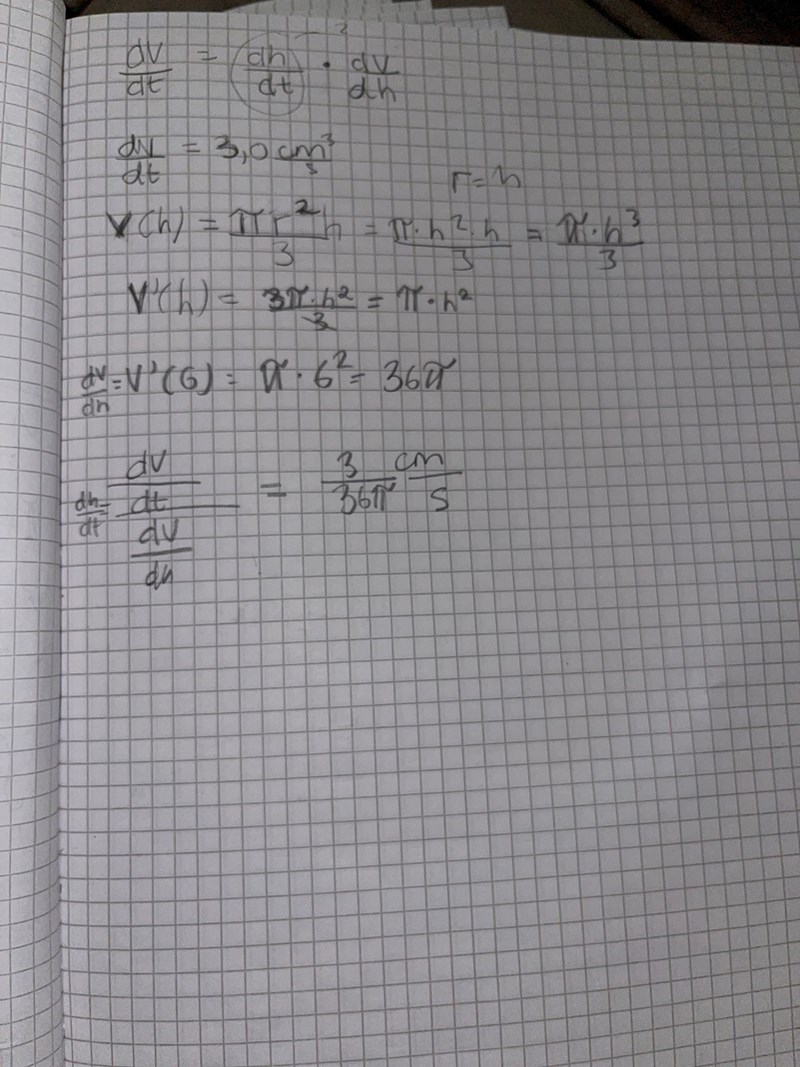 dV/dt = dh/dt · dV/dh
dV/dt = 3,0 cm³/s
r = h
V(h) = πr²h/3 = π·h²·h/3 = π·h³/3
V'(h) = 3π·h²/3 = π·h²
dV/dh = V'(6) = π·6² = 36π
dh/dt = (dV/dt)/(dV/dh) = 3/36π cm/s